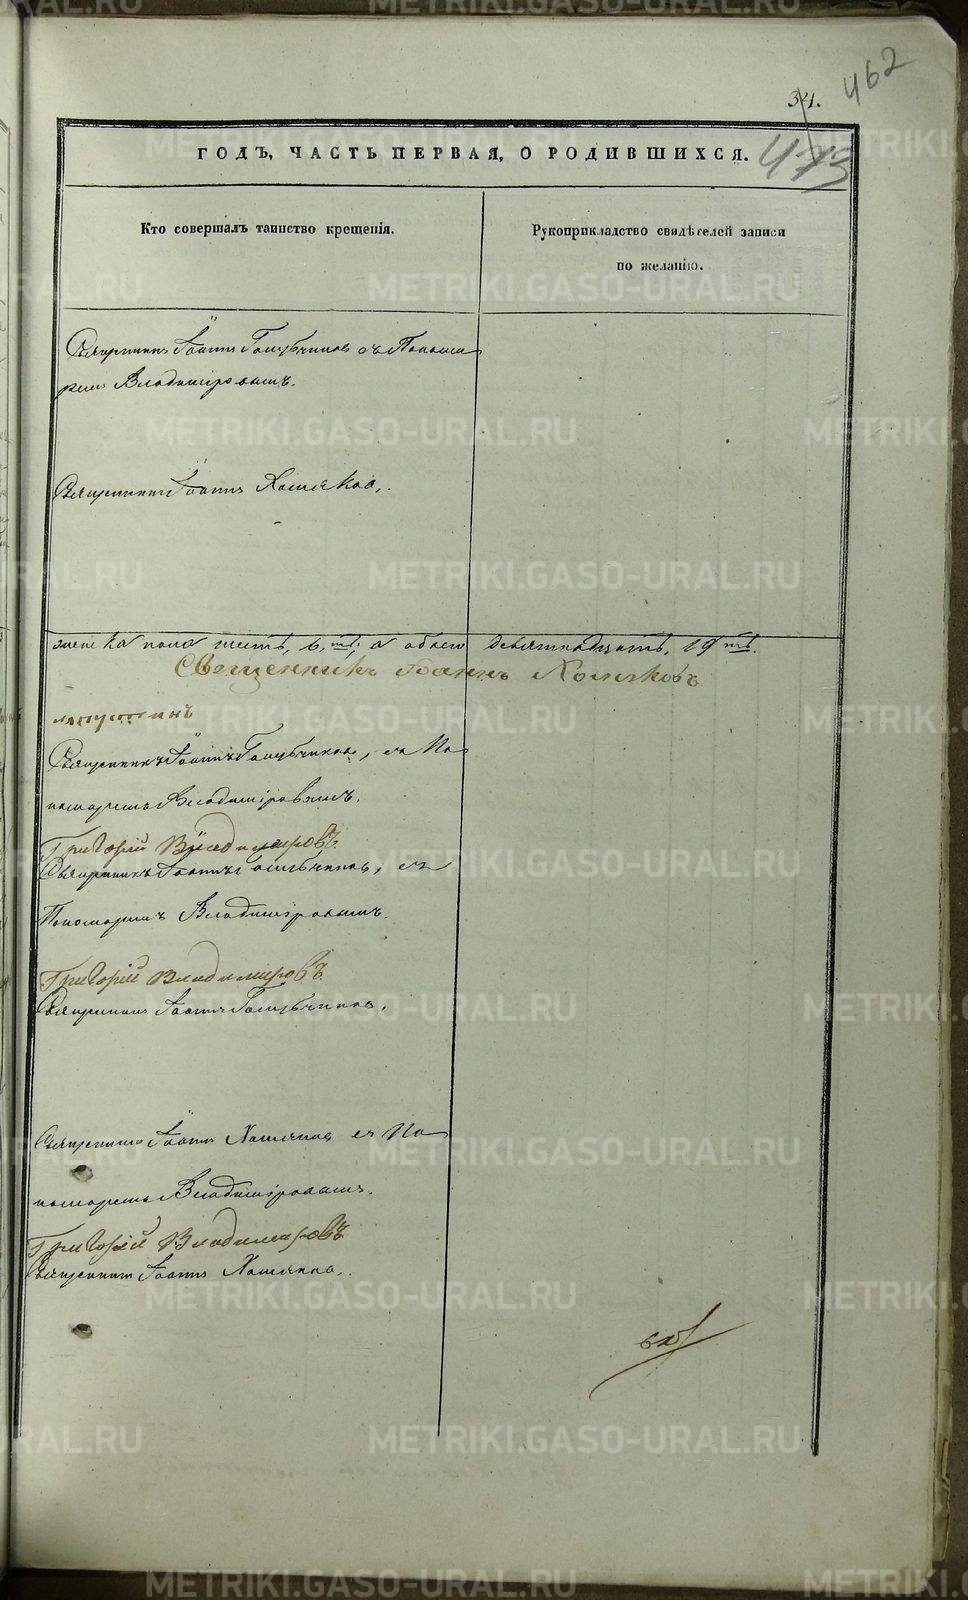 462
34.
473
ГОДЪ, ЧАСТЬ ПЕРВАЯ, О РОДИВШИХСЯ.
Кто совершалъ таинство крещенія.
Рукоприкладство свидѣтелей записи
по желанію.
Священникъ Іоаннъ Голубчиковъ съ Понома
ремъ Владиміровымъ.
Священникъ Іоаннъ Хомяковъ.
женска пола шесть, 6, ть, а обоего девятнадцать, 19 ть.
Священникъ Іоаннъ Хомяковъ
Священникъ Іоаннъ Голубчиковъ, съ По
номаремъ Владиміровымъ.
Григорій Владимировъ
Священникъ Іоаннъ Голубчиковъ, съ
Пономаремъ Владиміровымъ.
Григорій Владимировъ
Священникъ Іоаннъ Голубчиковъ.
Священникъ Іоаннъ Хомяковъ съ По
номаремъ Владиміровымъ.
Григорій Владимировъ
Священникъ Іоаннъ Хомяковъ.
METRIKI.GASO-URAL.RU